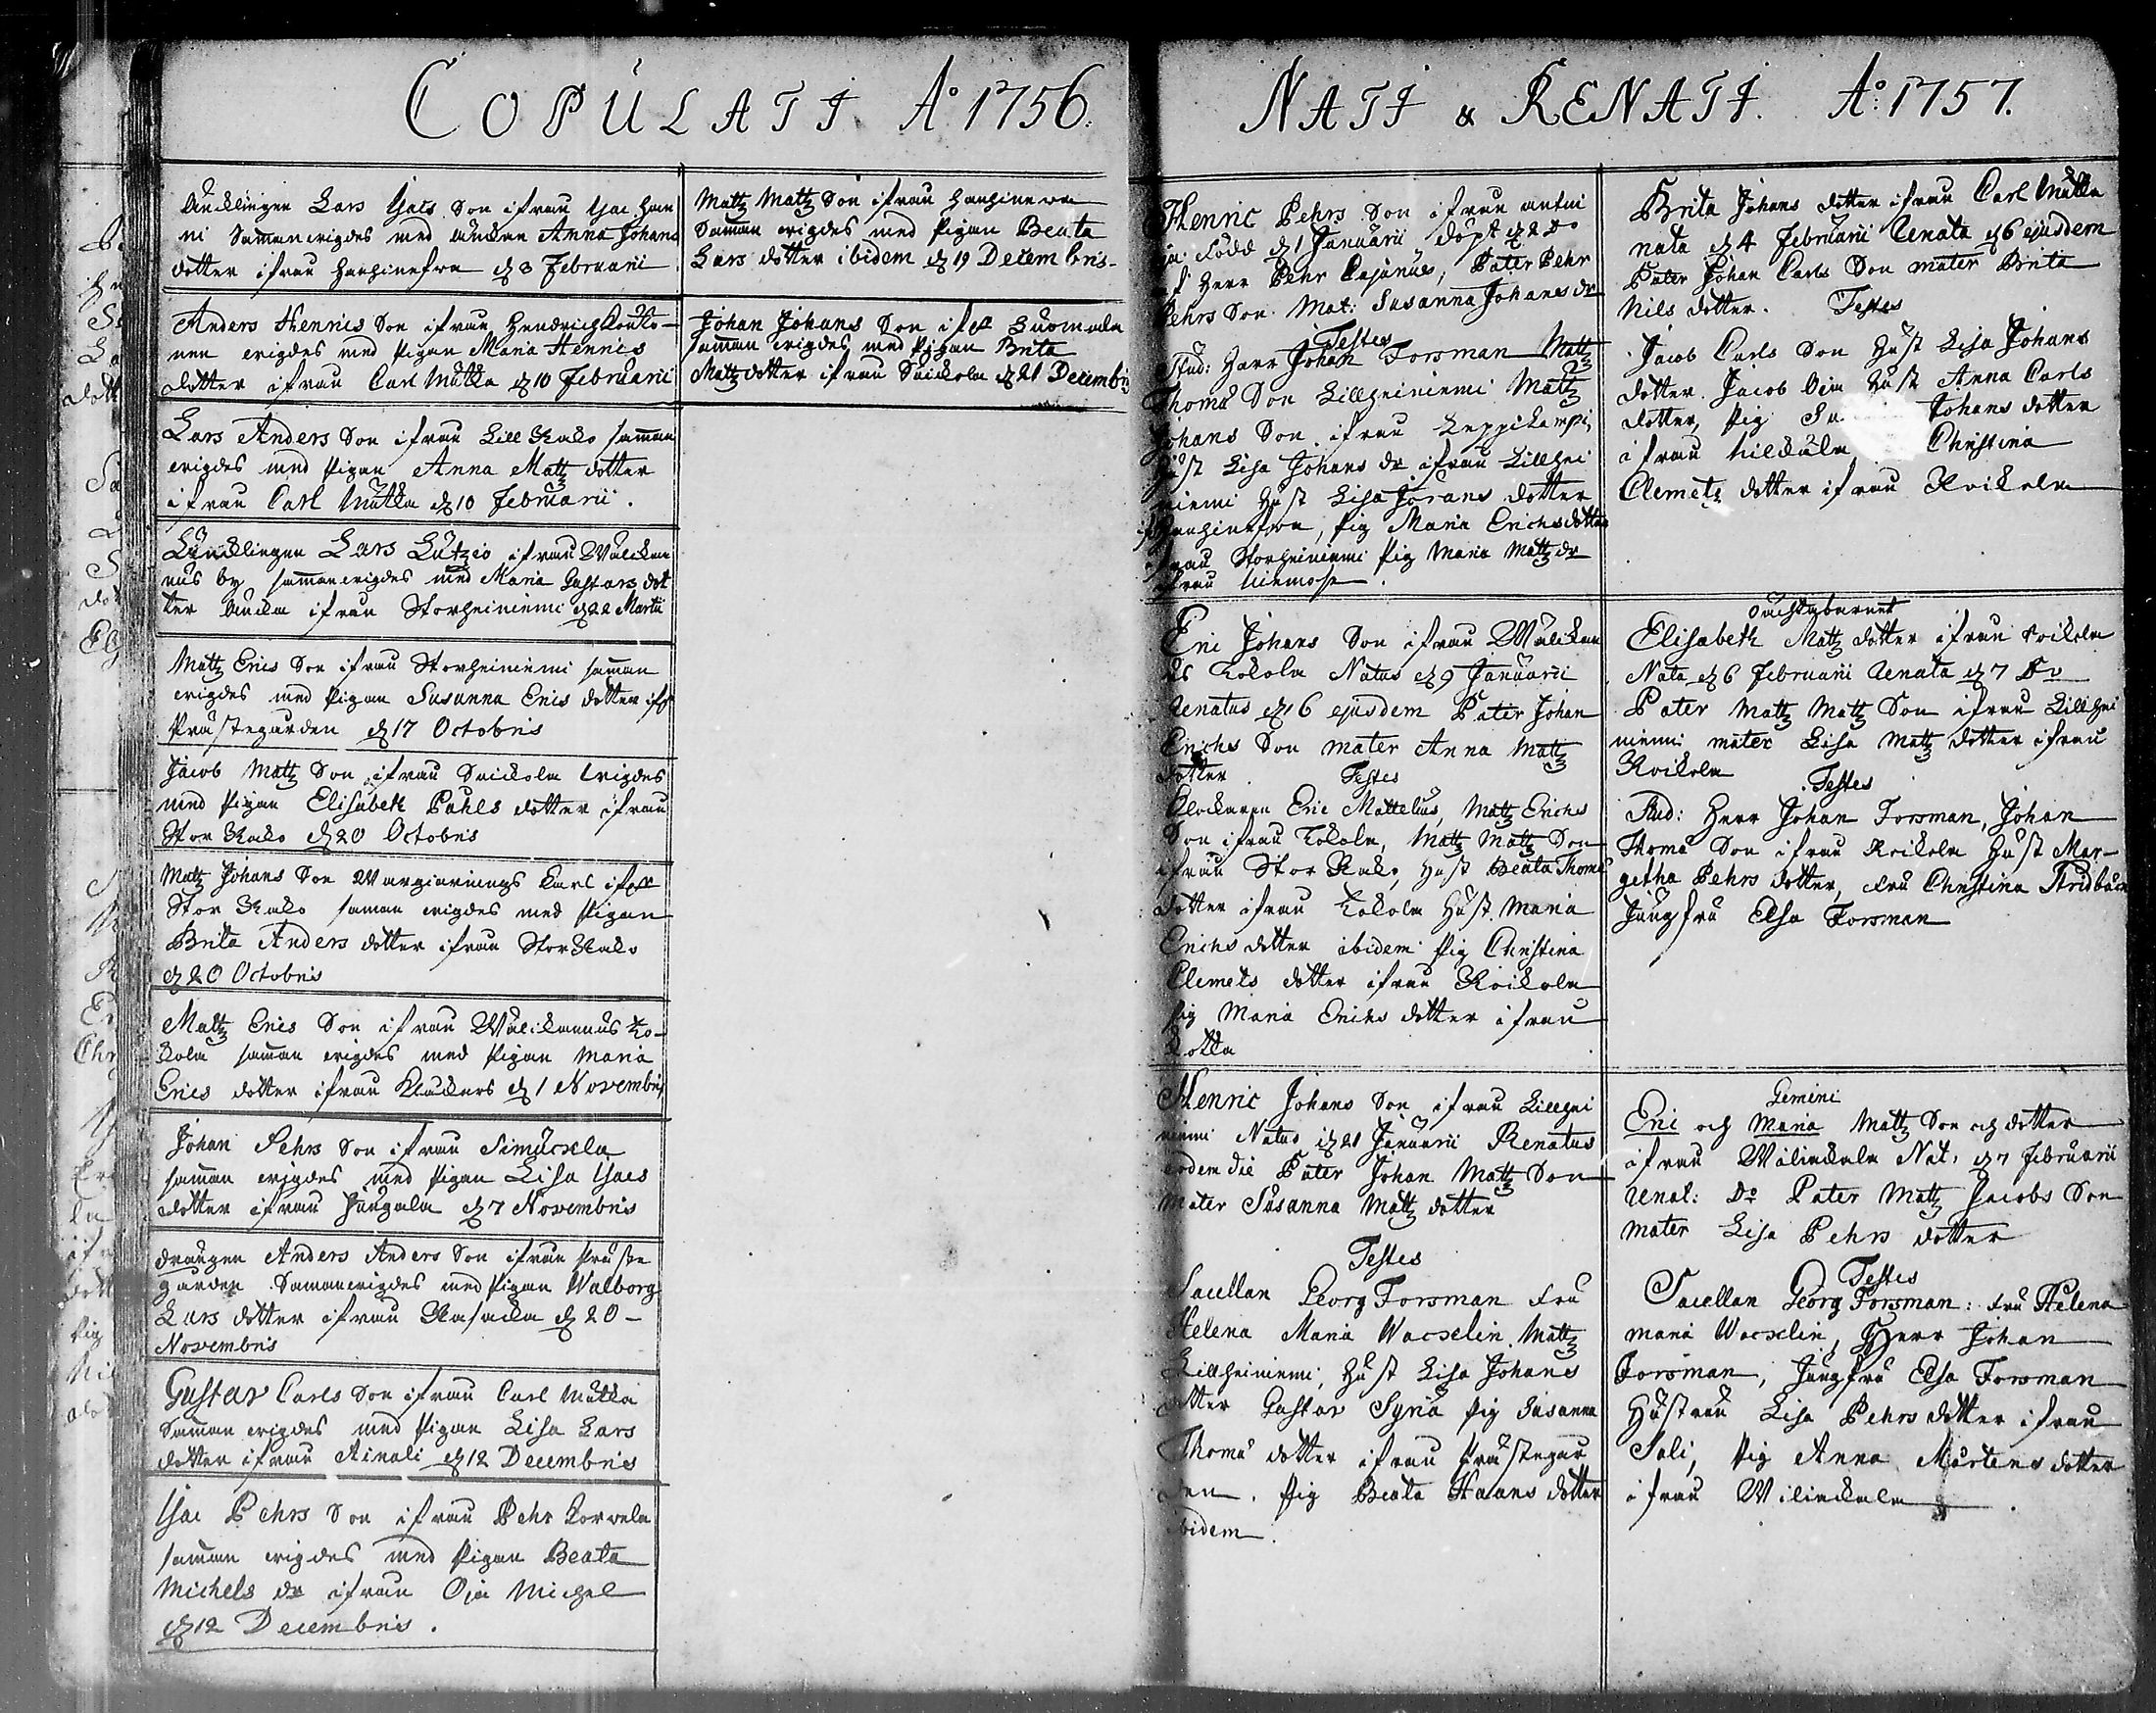 COPULATI A:o 1756.
Änklingen Lars Isacs Son ifrån Isac Han
ni Sammanvigdes med Änkan Anna Johans
dotter ifrån d. 3 Februarii
Anders Henrics Son ifrån Hendrich
nen vigdes med Pigan Maria Henrics
dotter ifrån Carl Mutka d. 10 Februarii
Lars Anders Son ifrån Lill Kako samman
vigdes med Pigan Anna Matz dotter
ifrån Carl Mutka d. 10 Februarii.
Änklingen Lars ifrån Wälikan
nus by sammanvigdes med Maria Gustavs dot
ter Änka ifrån Storheiniemi d. 22 Martii
Matz Erics Son ifrån Storheiniemi samman
vigdes med Pigan Susanna Erics dotter
Prästegården d. 17 Octobris
Jacob Matz Son ifrån vigdes
med Pigan Elisabeth Påhls dotter ifrån
Stor Kako d. 20 Octobris
Matz Johans Son Karl
Stor Kako samman vigdes med Pigan
Brita Anders dotter ifrån Stor Kako
d. 20 Octobris
Matz Erics Son ifrån Wälikannus Ko-
kola samman vigdes med Pigan Maria
Erics dotter ifrån d. 1 Novembris
Johan Pehrs Son ifrån
samman vigdes med Pigan Lisa Isacs
dotter ifrån d. 7 Novembris
Drängen Anders Anders Son ifrån Präste
gården Sammanvigdes med Pigan Walborg
Lars dotter ifrån d. 20
Novembris
Gustav Carls Son ifrån Carl Mutka
Samman vigdes med Pigan Lisa Lars
dotter ifrån Ainali d. 12 Decembris
Isac Pehrs Son ifrån Pehr Korvela
samman vigdes med Pigan Beata
Michels dr ifrån Oja Michel
d. 12 Decembris.
Matz Matz Son ifrån
Samman vigdes med Pigan Beata
Lars dotter ibidem d. 19 Decembris.
Johan Johans Son Suomala
samman vigdes med Pigan Brita
Matz dotter ifrån d. 21 Decembris
NATI & RENATI. A:o 1757.
Henric Pehrs Son ifrån
Född d. 1 Januarii döpt d. 2 Do
af Herr Pehr Cajanus, Pater Pehr
Pehrs Son Mat: Susanna Johans dr
Testes
Stud: Herr Johan Forsman Matz
Thoms Son Lillheiniemi Matz
Johans Son ifrån Leppikampi
Hust Lisa Johans dr ifrån Lillhei
niemi Hust Lisa Jörans dotter
Pig Maria Erichs dotter
ifrån Storheiniemi Pig Maria Matz dr
ifrån
Eric Johans Son ifrån Wälikan
us Kokola Natus d. 9 Januarii
Renatus d. 16 ejusdem Pater Johan
Erichs Son mater Anna Matz
dotter Testes
Klockaren Eric Mattelius, Matz Erichs
Son ifrån Kokola, Matz Matz Son
ifrån Stor Kako, Hust Beata Thoms
dotter ifrån Kokola Hust Maria
Erichs dotter ibidem Pig Christina
Clemets dotter ifrån Roikola
Pig Maria Erichs dotter ifrån
Henric Johans Son ifrån Lillhei
niemi Natus d. 21 Januarii Renatus
eodem die Pater Johan Matz Son
Mater Susanna Matz dotter
Testes
Sacellan Georg Forsman Fru
Helena Maria Wacxelin Matz
Lillheiniemi, Hust Lisa Johans
dotter Gustav Pig Susanna
Thoms dotter ifrån Prästegår
den. Pig Beata dotter
ibidem.
Brita Johans dotter ifrån Carl Mutka
nata d. 4 Februarii Renata d. 6 ejusdem
Pater Johan Carls Son mater Brita
Nils dotter. Testes
Jacob Carls Son Hust Lisa Johans
dotter Jacob Oja Hust Anna Carls
dotter, Pig Johans dotter
ifrån Christina
Clemets dotter ifrån Roikola
Oächtabarnet
Elisabeth Matz dotter ifrån Roikola
Nata d. 6 Februarii Renata d. 7 Do
Pater Matz Matz Son ifrån Lillhei
niemi mater Lisa Matz dotter ifrån
Roikola Testes
Stud: Herr Johan Forsman, Johan
Thoms Son ifrån Roikola Hust Mar-
getha Pehrs dotter, Fru Christina
Jungfru Elsa Forsman
Gemini
Eric och Maria Matz Son och dotter
ifrån Nat: d. 7 Februarii
Renat: Do Pater Matz Jacobs Son
mater Lisa Pehrs dotter
Testes
Sacellan Georg Forsman: Fru Helena
Maria Wacxelin, Herr Johan
Forsman, Jungfru Elsa Forsman
Hustrun Lisa Pehrs dotter ifrån
Pig Anna Mårtens dotter
ifrån